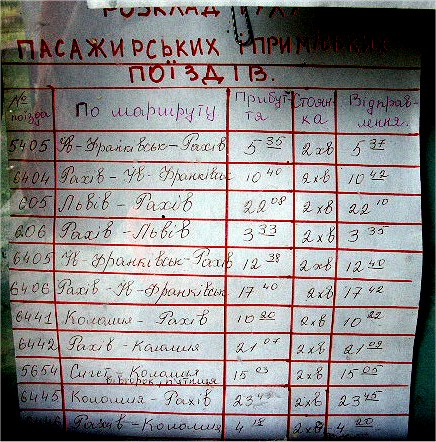 РОЗКЛАД РУХУ
ПАСАЖИРСЬКИХ І ПРИМІСЬКИХ
ПОЇЗДІВ.
№ поїзда По маршруту Прибуття Стоянка Відправлення.
5405 Ів-Франківськ-Рахів 5 35 2хв 5 37
6404 Рахів-Ів-Франківськ 10 40 2хв 10 42
605 Львів-Рахів 22 08 2хв 22 10
606 Рахів-Львів 3 33 2хв 3 35
6405 Ів-Франківськ-Рахів 12 38 2хв 12 40
6406 Рахів-Ів-Франківськ 17 40 2хв 17 42
6441 Коломия-Рахів 10 20 2хв 10 22
6442 Рахів-Коломия 21 07 2хв 21 09
5654 Сигет-Коломия 15 03 2хв 15 05
вівторок, п'ятниця
6445 Коломия-Рахів 23 43 2хв 23 45
Рахів-Коломия 4 18 2хв 4 20